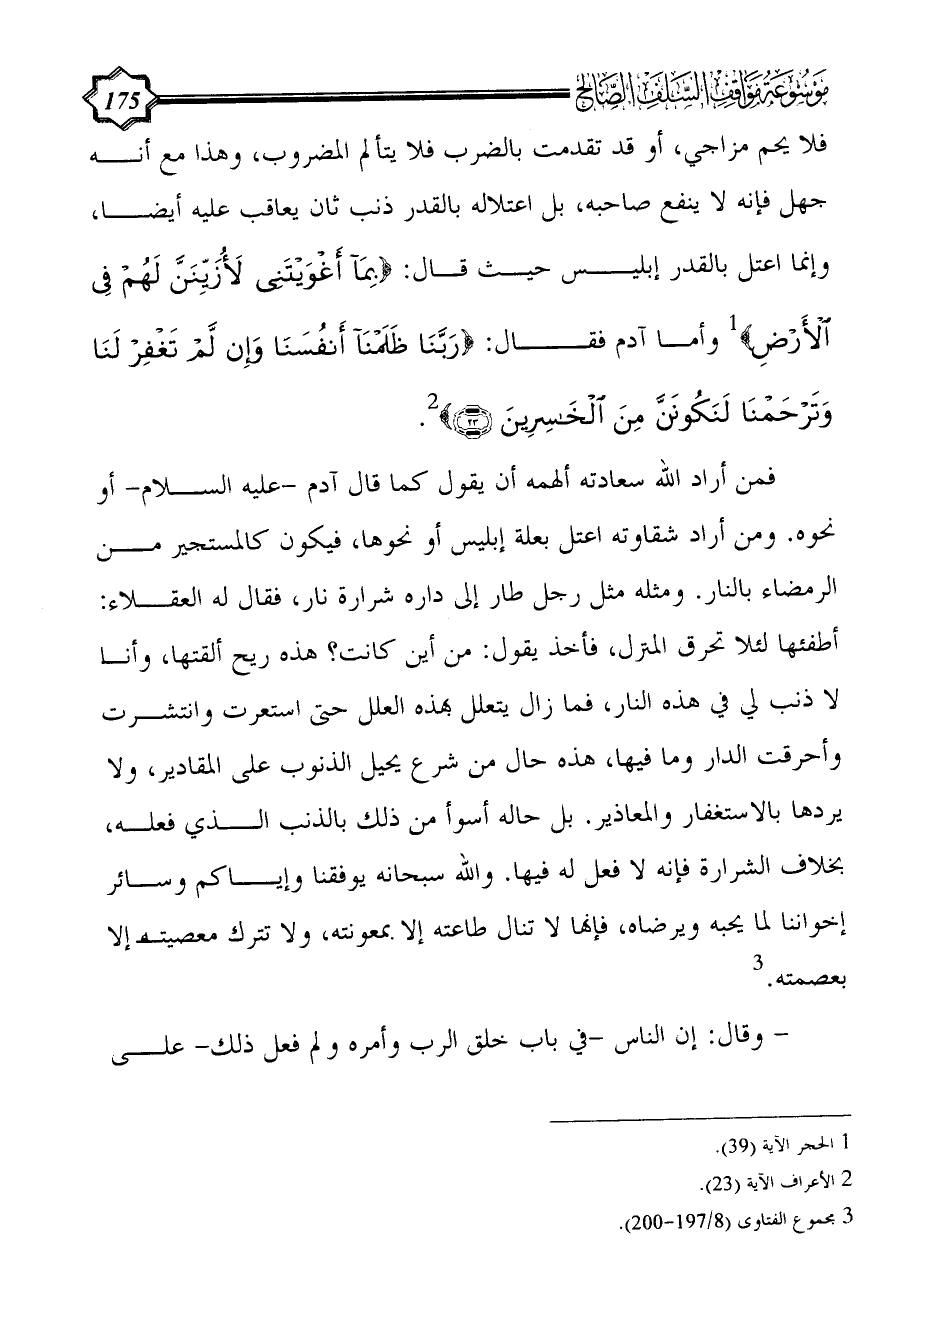 موسوعة مواقف السلف الصالح
175
فلا يحم مزاجي، أو قد تقدمت بالضرب فلا يتألم المضروب، وهذا مع أنـــه
جهل فإنه لا ينفع صاحبه، بل اعتلاله بالقدر ذنب ثان يعاقب عليه أيضـــا،
وإنما اعتل بالقدر إبليـــس حيـث قـــال: ﴿بِمَآ أَغْوَيْتَنِى لَأُزَيِّنَنَّ لَهُمْ فِى
ٱلْأَرْضِ﴾1 وأمـــا آدم فقـــــال: ﴿رَبَّنَا ظَلَمْنَآ أَنفُسَنَا وَإِن لَّمْ تَغْفِرْ لَنَا
وَتَرْحَمْنَا لَنَكُونَنَّ مِنَ ٱلْخَـٰسِرِينَ ۝٢٣﴾2.
فمن أراد الله سعادته ألهمه أن يقول كما قال آدم -عليه الســـلام- أو
نحوه. ومن أراد شقاوته اعتل بعلة إبليس أو نحوها، فيكون كالمستجير مـــن
الرمضاء بالنار. ومثله مثل رجل طار إلى داره شرارة نار، فقال له العقـــلاء:
أطفئها لئلا تحرق المنزل، فأخذ يقول: من أين كانت؟ هذه ريح ألقتها، وأنـا
لا ذنب لي في هذه النار، فما زال يتعلل بهذه العلل حتى استعرت وانتشـــرت
وأحرقت الدار وما فيها، هذه حال من شرع يحيل الذنوب على المقادير، ولا
يردها بالاستغفار والمعاذير. بل حاله أسوأ من ذلك بالذنب الـــذي فعلـــه،
بخلاف الشرارة فإنه لا فعل له فيها. والله سبحانه يوفقنا وإيـــاكم وســـائر
إخواننا لما يحبه ويرضاه، فإنها لا تنال طاعته إلا بمعونته، ولا تترك معصيتـه إلا
بعصمته.3
- وقال: إن الناس -في باب خلق الرب وأمره و لم فعل ذلك- علـــى
1 الحجر الآية (39).
2 الأعراف الآية (23).
3 مجموع الفتاوى (197/8-200).